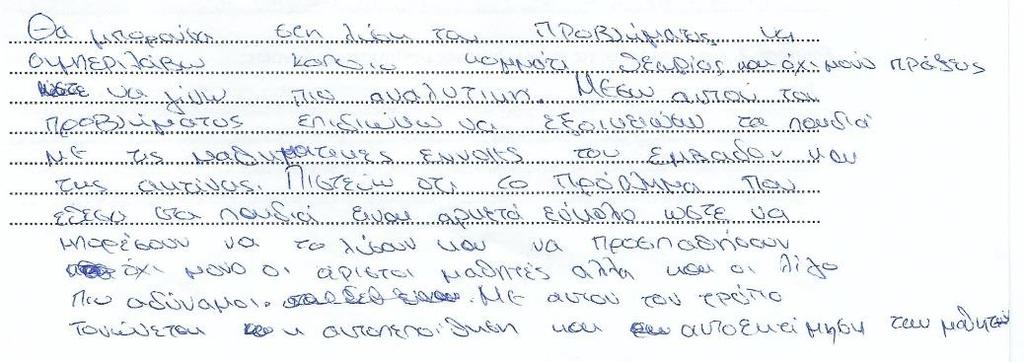 Θα μπορούσα στη λύση του προβλήματος να
συμπεριλάβω κάποιο κομμάτι θεωρίας και όχι μόνο πράξεις
ώστε να γίνω πιο αναλυτική. Μέσω αυτού του
προβλήματος επιδιώκω να εξοικειώσω τα παιδιά
με τις μαθηματικές έννοιες του εμβαδού και
της ακτίνας. Πιστεύω ότι το πρόβλημα που
έθεσα στα παιδιά είναι αρκετά εύκολο ώστε να
μπορέσουν να το λύσουν και να προσπαθήσουν
όχι μόνο οι άριστοι μαθητές αλλά και οι λίγο
πιο αδύναμοι. Με αυτόν τον τρόπο
τονώνεται η αυτοπεποίθηση και αυτοεκτίμηση των μαθητών